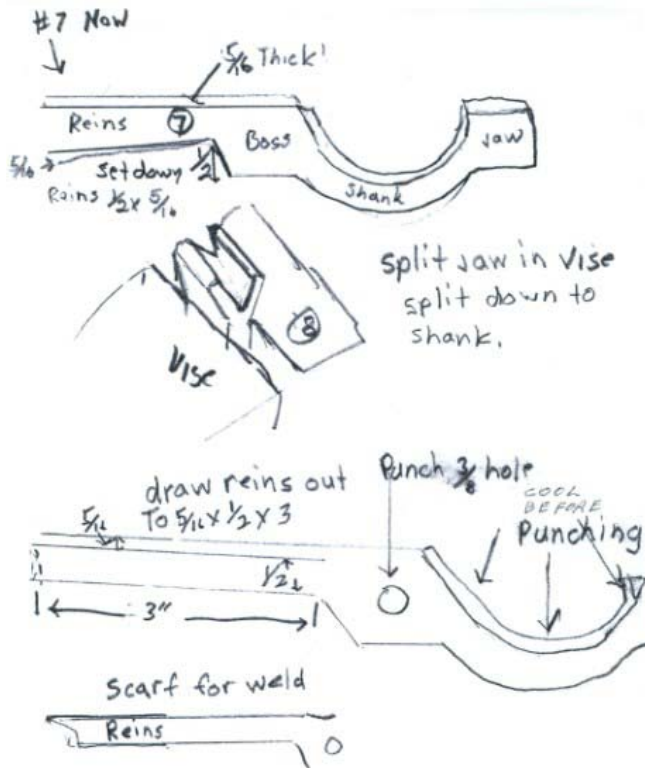 #7 Now
5/16 Thick!
Reins
7
Boss
Jaw
5/16
set down
1/2
Reins 1/2 x 5/16
Shank
split jaw in vise
split down to
shank.
8
Vise
Punch 3/8 hole
draw reins out
To 5/16 x 1/2 x 3
COOL
BEFORE
Punching
5/16
1/2
3"
scarf for weld
Reins